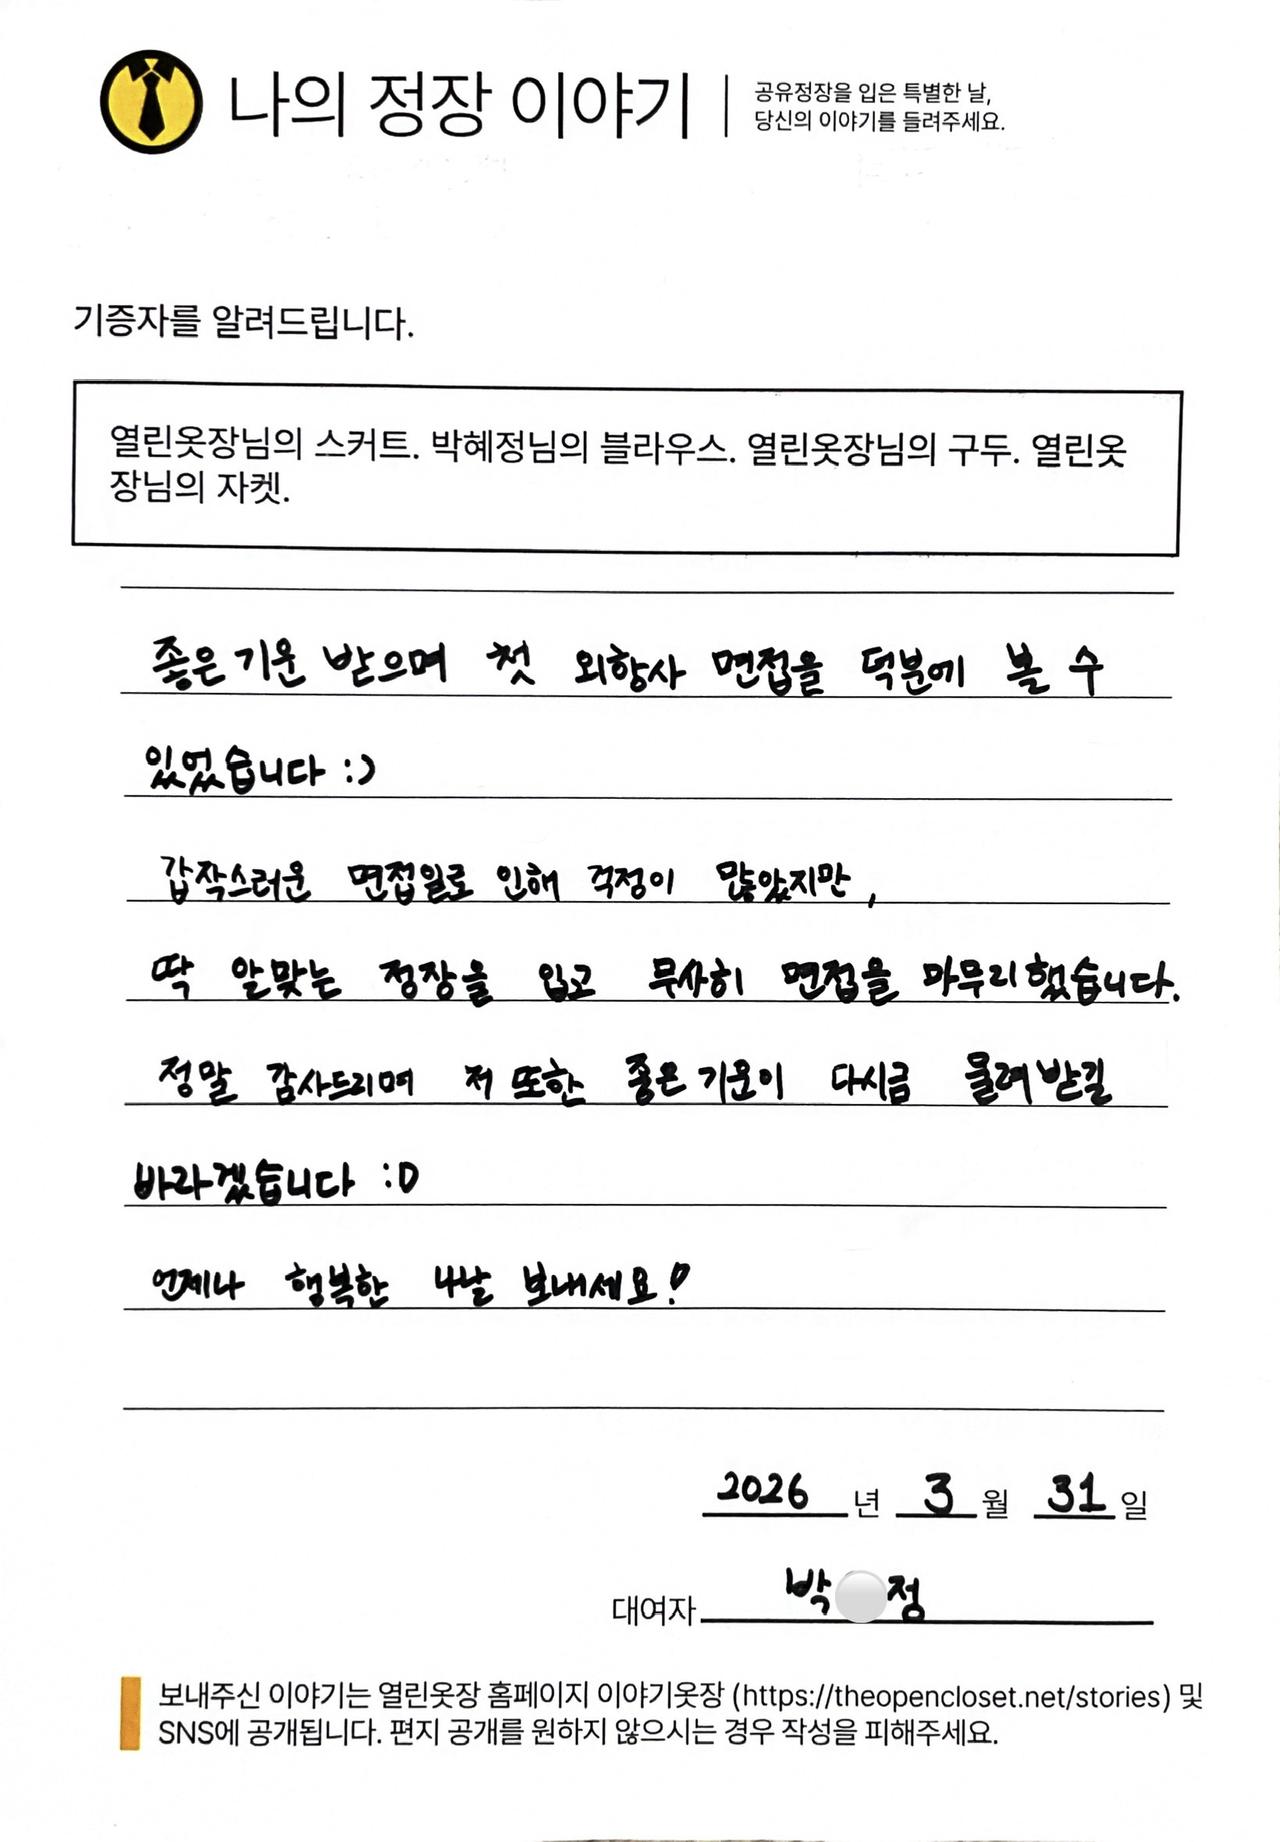 나의 정장 이야기
공유정장을 입은 특별한 날,
당신의 이야기를 들려주세요.
기증자를 알려드립니다.
열린옷장님의 스커트. 박혜정님의 블라우스. 열린옷장님의 구두. 열린옷
장님의 자켓.
좋은 기운 받으며 첫 외항사 면접을 덕분에 볼 수
있었습니다 :)
갑작스러운 면접일로 인해 걱정이 많았지만,
딱 알맞는 정장을 입고 무사히 면접을 마무리했습니다.
정말 감사드리며 저 또한 좋은 기운이 다시금 물려받길
바라겠습니다 :D
언제나 행복한 나날 보내세요!
2026 년 3 월 31 일
대여자 박 정
보내주신 이야기는 열린옷장 홈페이지 이야기옷장 (https://theopencloset.net/stories) 및
SNS에 공개됩니다. 편지 공개를 원하지 않으시는 경우 작성을 피해주세요.